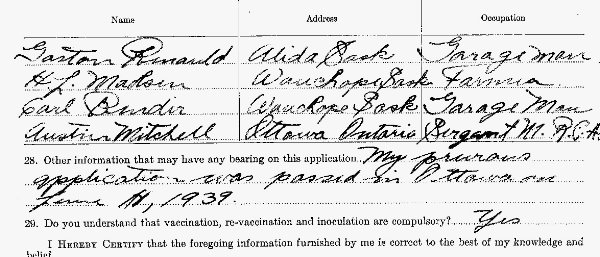 Name Address Occupation
Gaston Renauld Alida Sask Garage man
H. L. Madsen Wauchope Sask Farmer
Carl Bender Wauchope Sask Garage Man
Austin Mitchell Ottawa Ontario Sergant M. R.C.A.
28. Other information that may have any bearing on this application. My prevous
application was passed in Ottawa on
June , 1939
29. Do you understand that vaccination, re-vaccination and inoculation are compulsory? Yes
I HEREBY CERTIFY that the foregoing information furnished by me is correct to the best of my knowledge and
belief